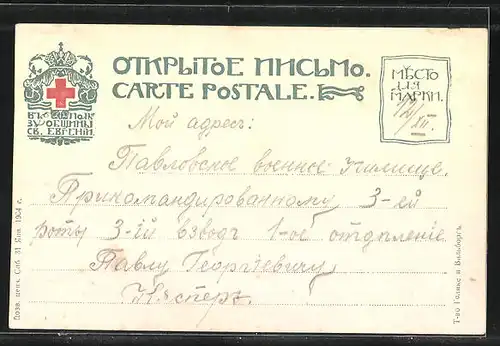 ОТКРЫТОЕ ПИСЬМО.
CARTE POSTALE.
МѢСТО
ДЛЯ
МАРКИ.
ВЪ ПОЛЬЗУ ОБЩИНЫ
СВ. ЕВГЕНІИ.
Мой адресъ:
Павловское военное Училище.
Прикомандированному 3-ей
роты 3-ій взводъ 1-ое отдѣленіе
Павлу Георгіевичу
Дозв. ценз. Спб. 31 Янв. 1904 г.
Т-во Голике и Вильборгъ.